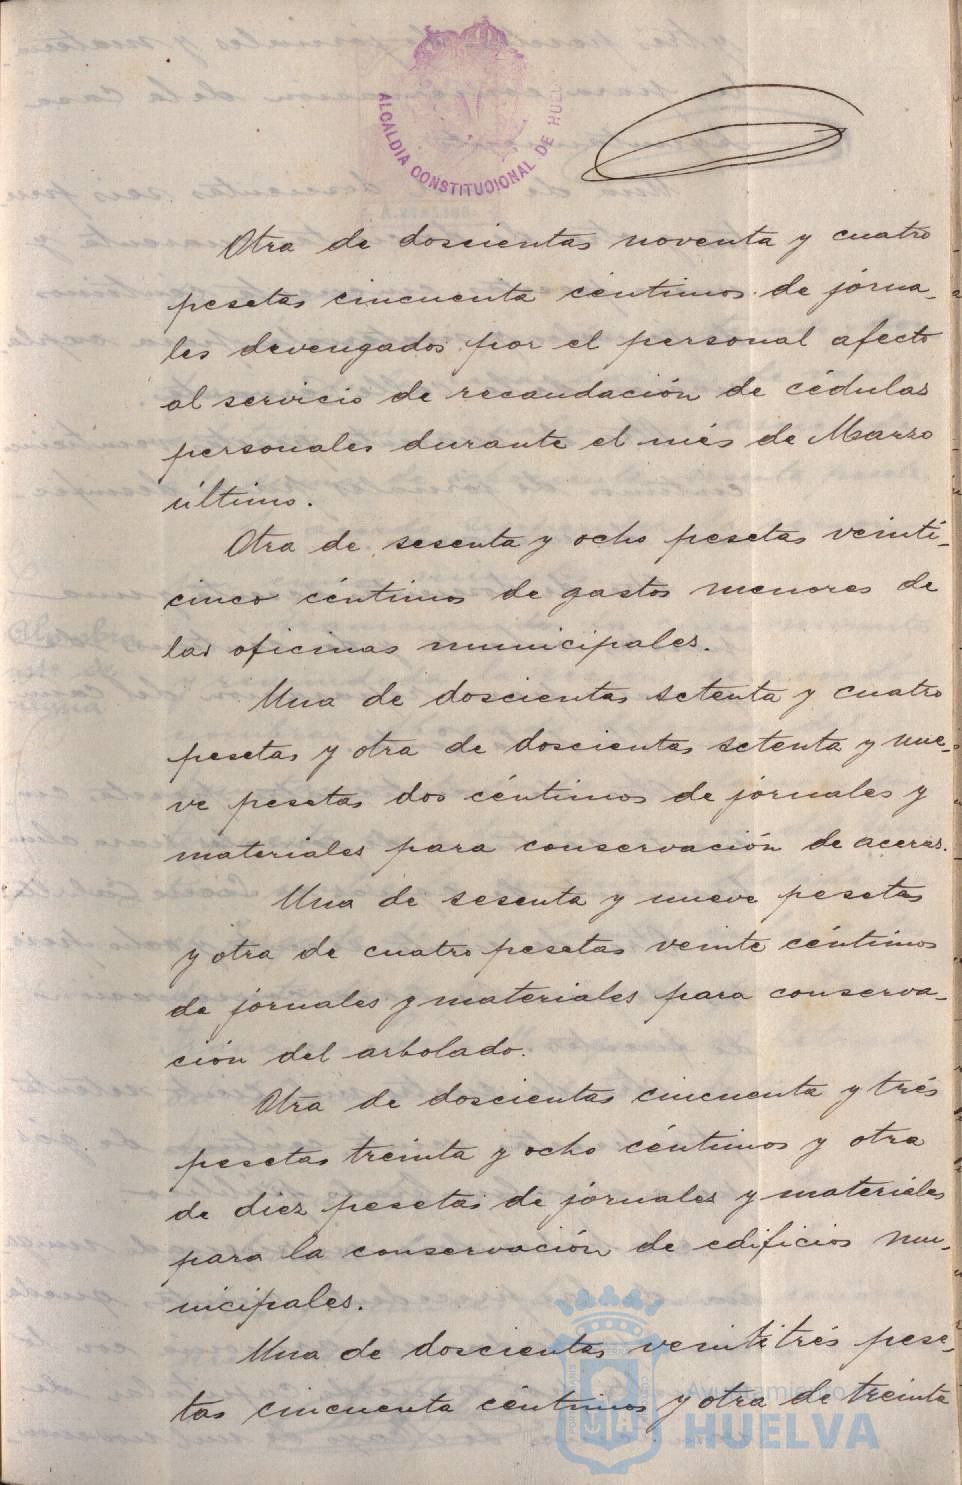 ALCALDIA CONSTITUCIONAL DE HUEL
Otra de doscientas noventa y cuatro
pesetas cincuenta céntimos de jórna-
les devengados por el personal afecto
al servicio de recaudación de cédulas
personales durante el més de Marzo
último.
Otra de sesenta y ocho pesetas veinti-
cinco céntimos de gastos menores de
las oficinas municipales.
Una de doscientas setenta y cuatro
pesetas y otra de doscientas setenta y nue-
ve pesetas dos céntimos de jórnales y
materiales para conservación de aceras.
Una de sesenta y nueve pesetas
y otra de cuatro pesetas veinte céntimos
de jórnales y materiales para conserva-
ción del arbolado.
Otra de doscientas cincuenta y trés
pesetas treinta y ocho céntimos y otra
de diez pesetas de jórnales y materiales
para la conservación de edificios mu-
nicipales.
Una de doscientas veintitrés pese-
tas cincuenta céntimos y otra de treinta
Ayuntamiento
HUELVA